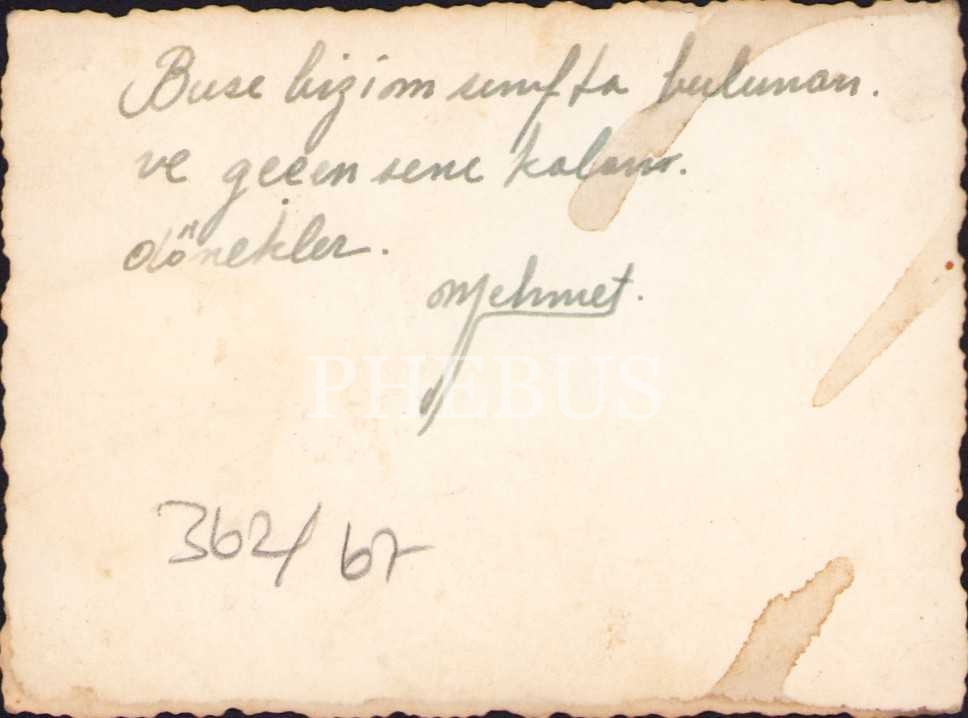 Buse bizim sınıfta bulunan.
ve geçen sene kalan.
dönekler.
Mehmet.
PHEBUS
362/67